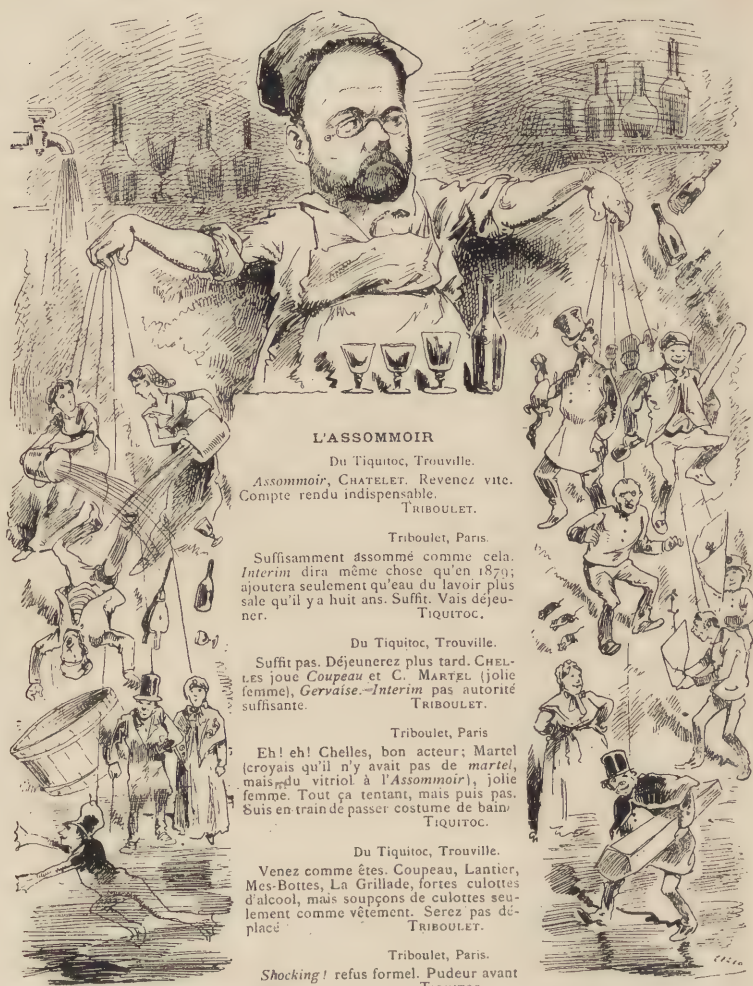 L'ASSOMMOIR
Du Tiquitoc, Trouville.
Assommoir, CHATELET. Revenez vite.
Compte rendu indispensable.
TRIBOULET.
Triboulet, Paris.
Suffisamment assommé comme cela.
Interim dira même chose qu'en 1879;
ajoutera seulement qu'eau du lavoir plus
sale qu'il y a huit ans. Suffit. Vais déjeu-
ner. TIQUITOC.
Du Tiquitoc, Trouville.
Suffit pas. Déjeunerez plus tard. CHEL-
LES joue Coupeau et C. MARTEL (jolie
femme), Gervaise. Interim pas autorité
suffisante. TRIBOULET.
Triboulet, Paris
Eh! eh! Chelles, bon acteur; Martel
(croyais qu'il n'y avait pas de martel,
mais du vitriol à l'Assommoir), jolie
femme. Tout ça tentant, mais puis pas.
Suis en train de passer costume de bain
TIQUITOC.
Du Tiquitoc, Trouville.
Venez comme êtes. Coupeau, Lantier,
Mes-Bottes, La Grillade, fortes culottes
d'alcool, mais soupçons de culottes seu-
lement comme vêtement. Serez pas dé-
placé TRIBOULET.
Triboulet, Paris.
Shocking! refus formel. Pudeur avant